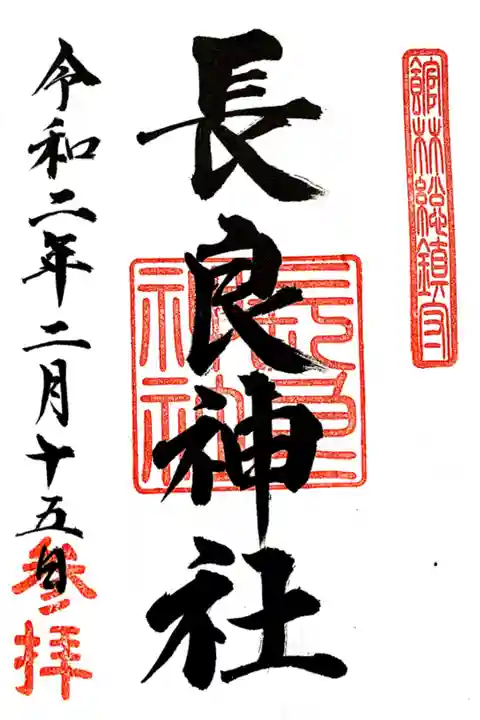 館林総鎮守
長良神社
長良神社
令和二年二月十五日
参拝